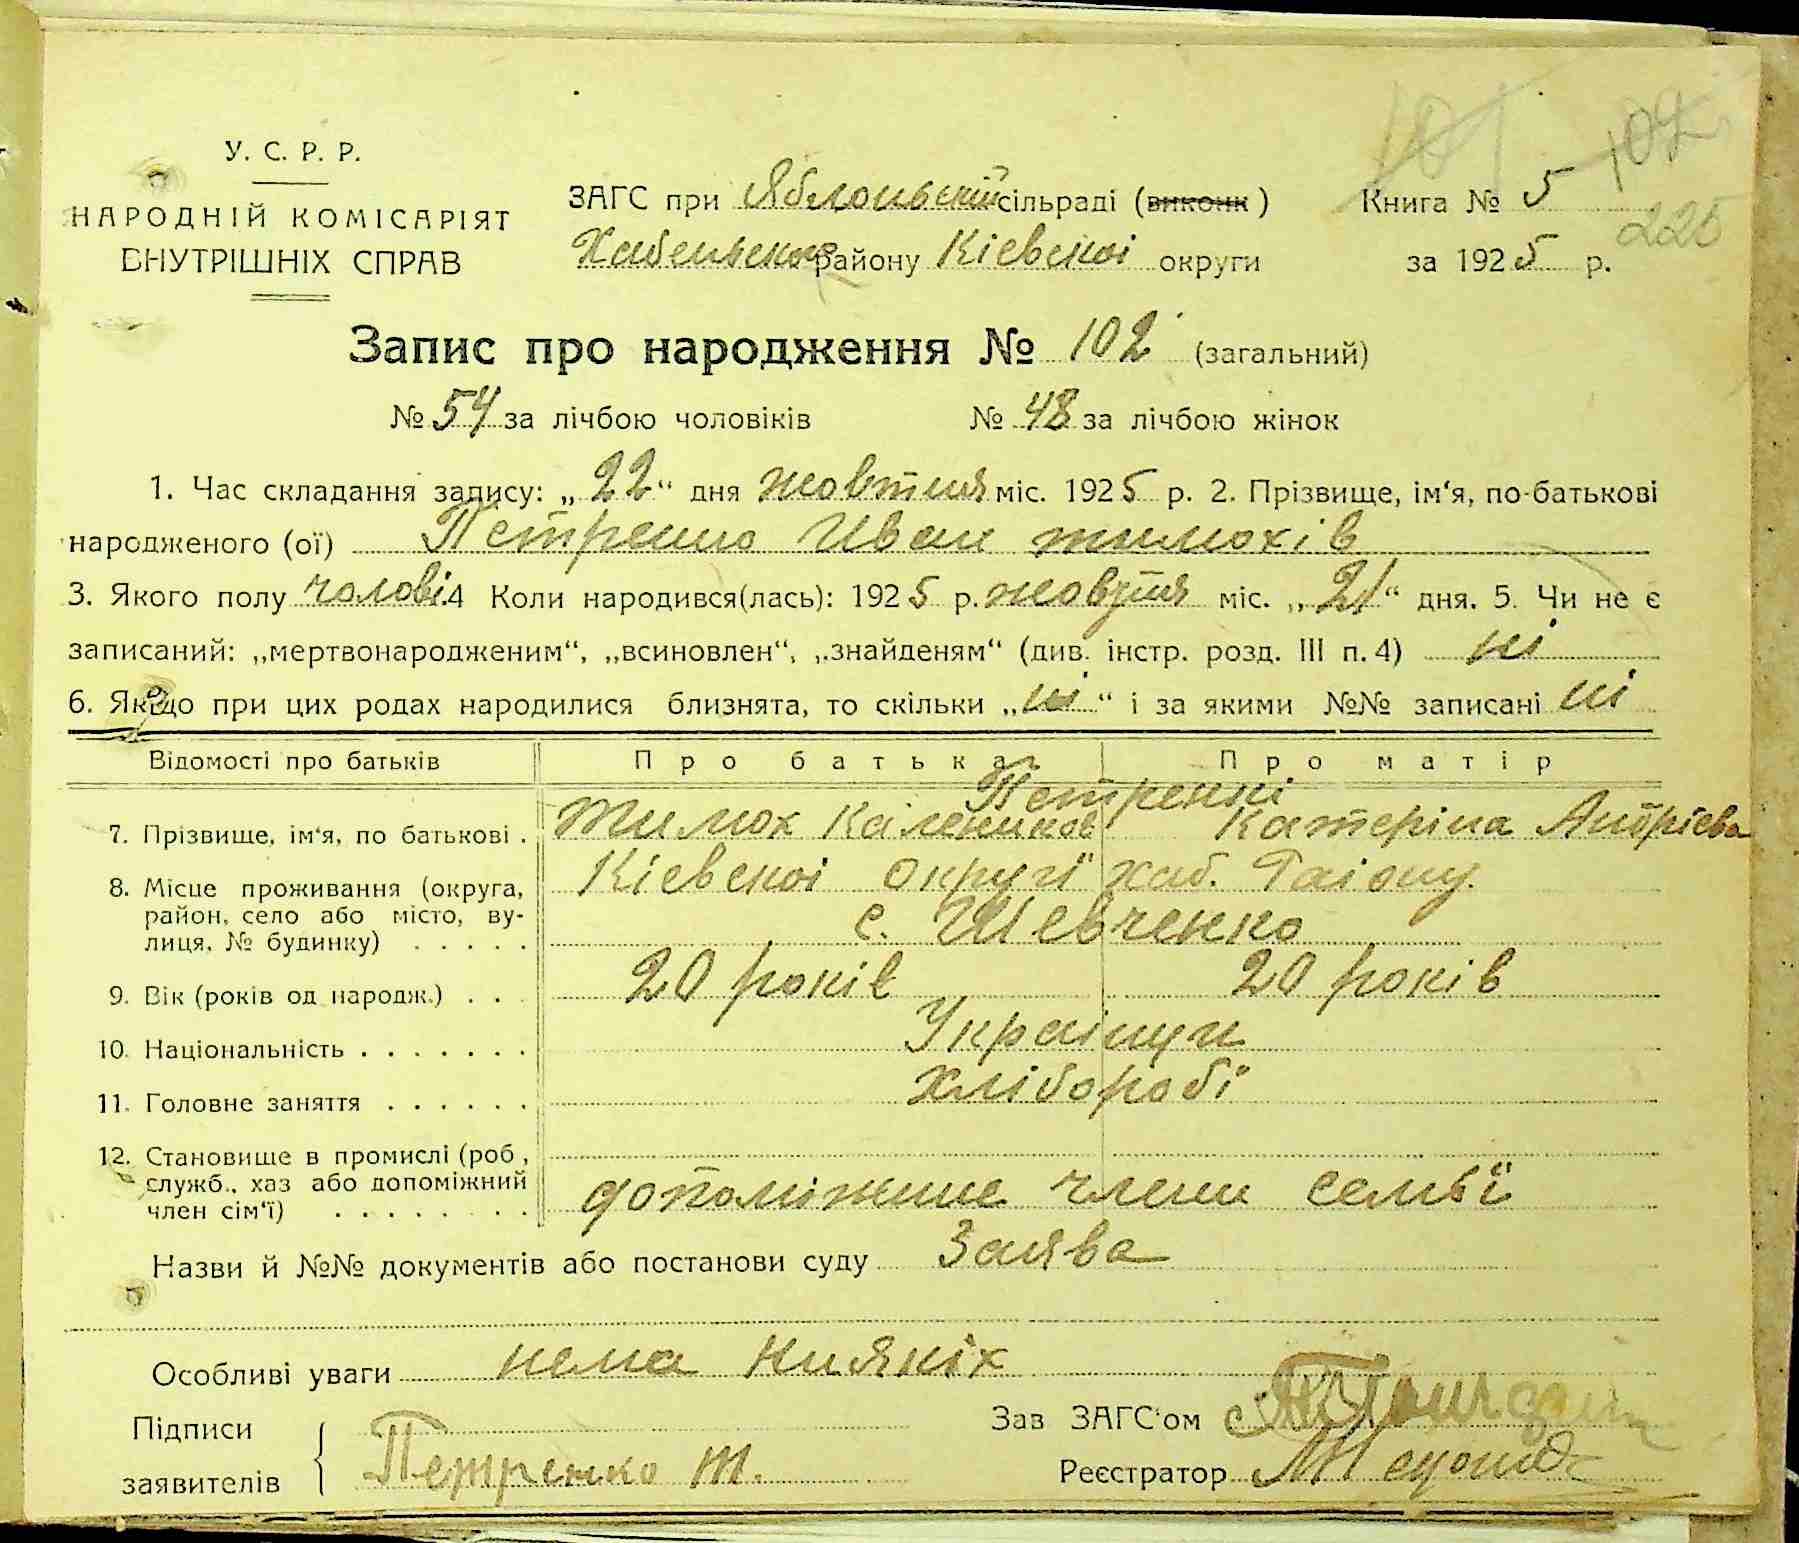 101 102
225
У. С. Р. Р.
НАРОДНІЙ КОМІСАРІЯТ
ВНУТРІШНІХ СПРАВ
ЗАГС при Яблоньскій сільраді (виконк) Книга № 5
району Кіевскоі округи за 1925 р.
Запис про народження № 102 (загальний)
№ 54 за лічбою чоловіків № 48 за лічбою жінок
1. Час складання запису: „22“ дня жовтня міс. 1925 р. 2. Прізвище, ім‘я, по-батькові
народженого (ої) Петренко Иван тимохів
3. Якого полу чолові. 4 Коли народився(лась): 1925 р. жовтня міс. „21“ дня. 5. Чи не є
записаний: „мертвонародженим“, „всиновлен“, „знайденям“ (див. інстр. розд. III п. 4) ні
6. Якщо при цих родах народилися близнята, то скільки „ні“ і за якими №№ записані ні
Відомості про батьків Про батька Про матір
Петренкі
7. Прізвище, ім‘я, по батькові . Тимох Калеников Катеріна Андрієва
8. Місце проживання (округа, Кіевскоі округи хаб. Раіону.
район, село або місто, ву-
лиця, № будинку) . . . . . с. Шевченко
9. Вік (років од народж.) . . . 20 років 20 років
10. Національність . . . . . . . Украінци
11. Головне заняття . . . . . . Хліборобі
12. Становище в промислі (роб.,
служб., хаз або допоміжний допоміжние члени семьї
член сім‘ї) . . . . . . . .
Назви й №№ документів або постанови суду Заява
Особливі уваги нема Ниякіх
Підписи Зав ЗАГС‘ом
заявителів Петренко Т. Реєстратор